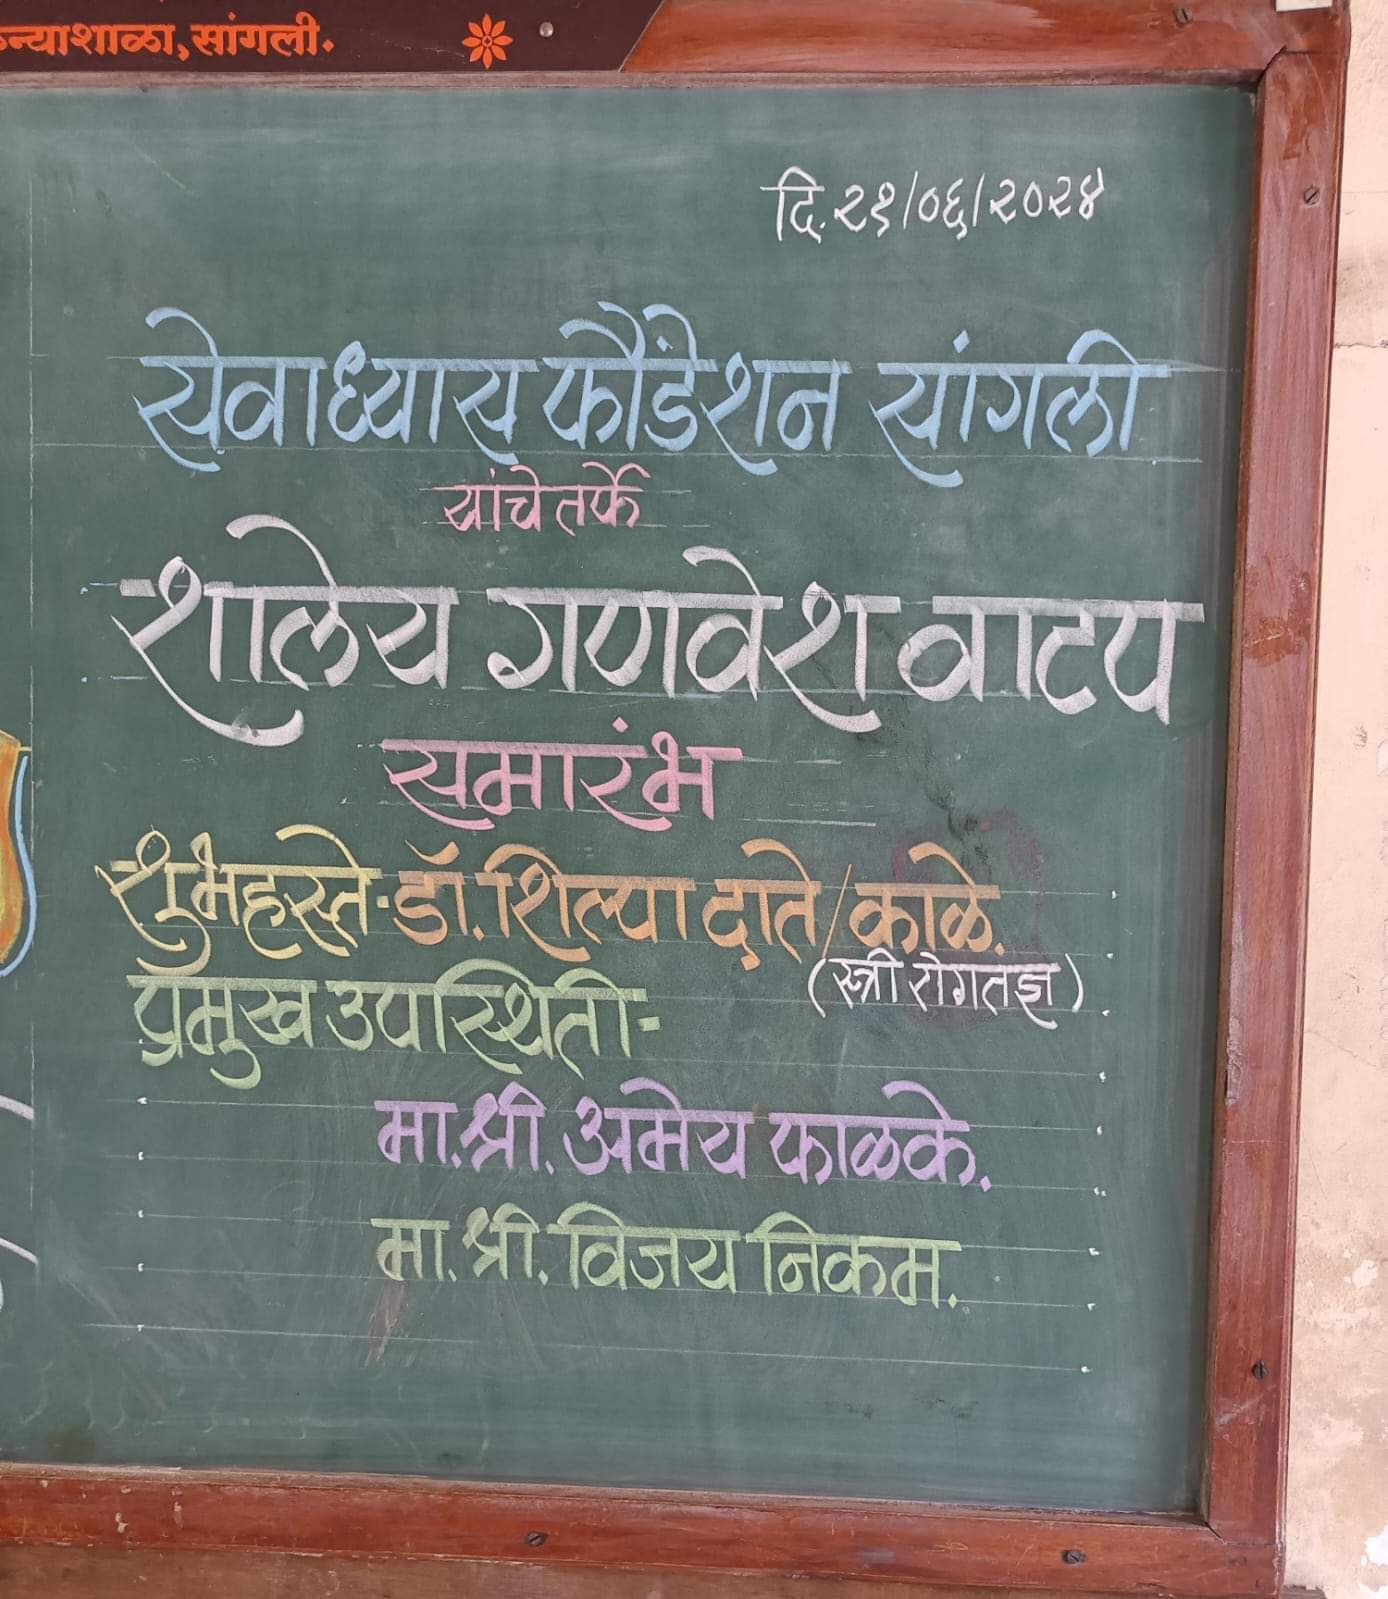 न्याशाळा, सांगली.
दि. २१/०६/२०२४
सेवाध्यास फौंडेशन सांगली
यांचे तर्फे
शालेय गणवेश वाटप
समारंभ
शुभहस्ते - डॉ. शिल्पा दाते / काळे.
(स्त्री रोगतज्ञ)
प्रमुख उपस्थिती -
मा. श्री. अमेय फाळके.
मा. श्री. विजय निकम.